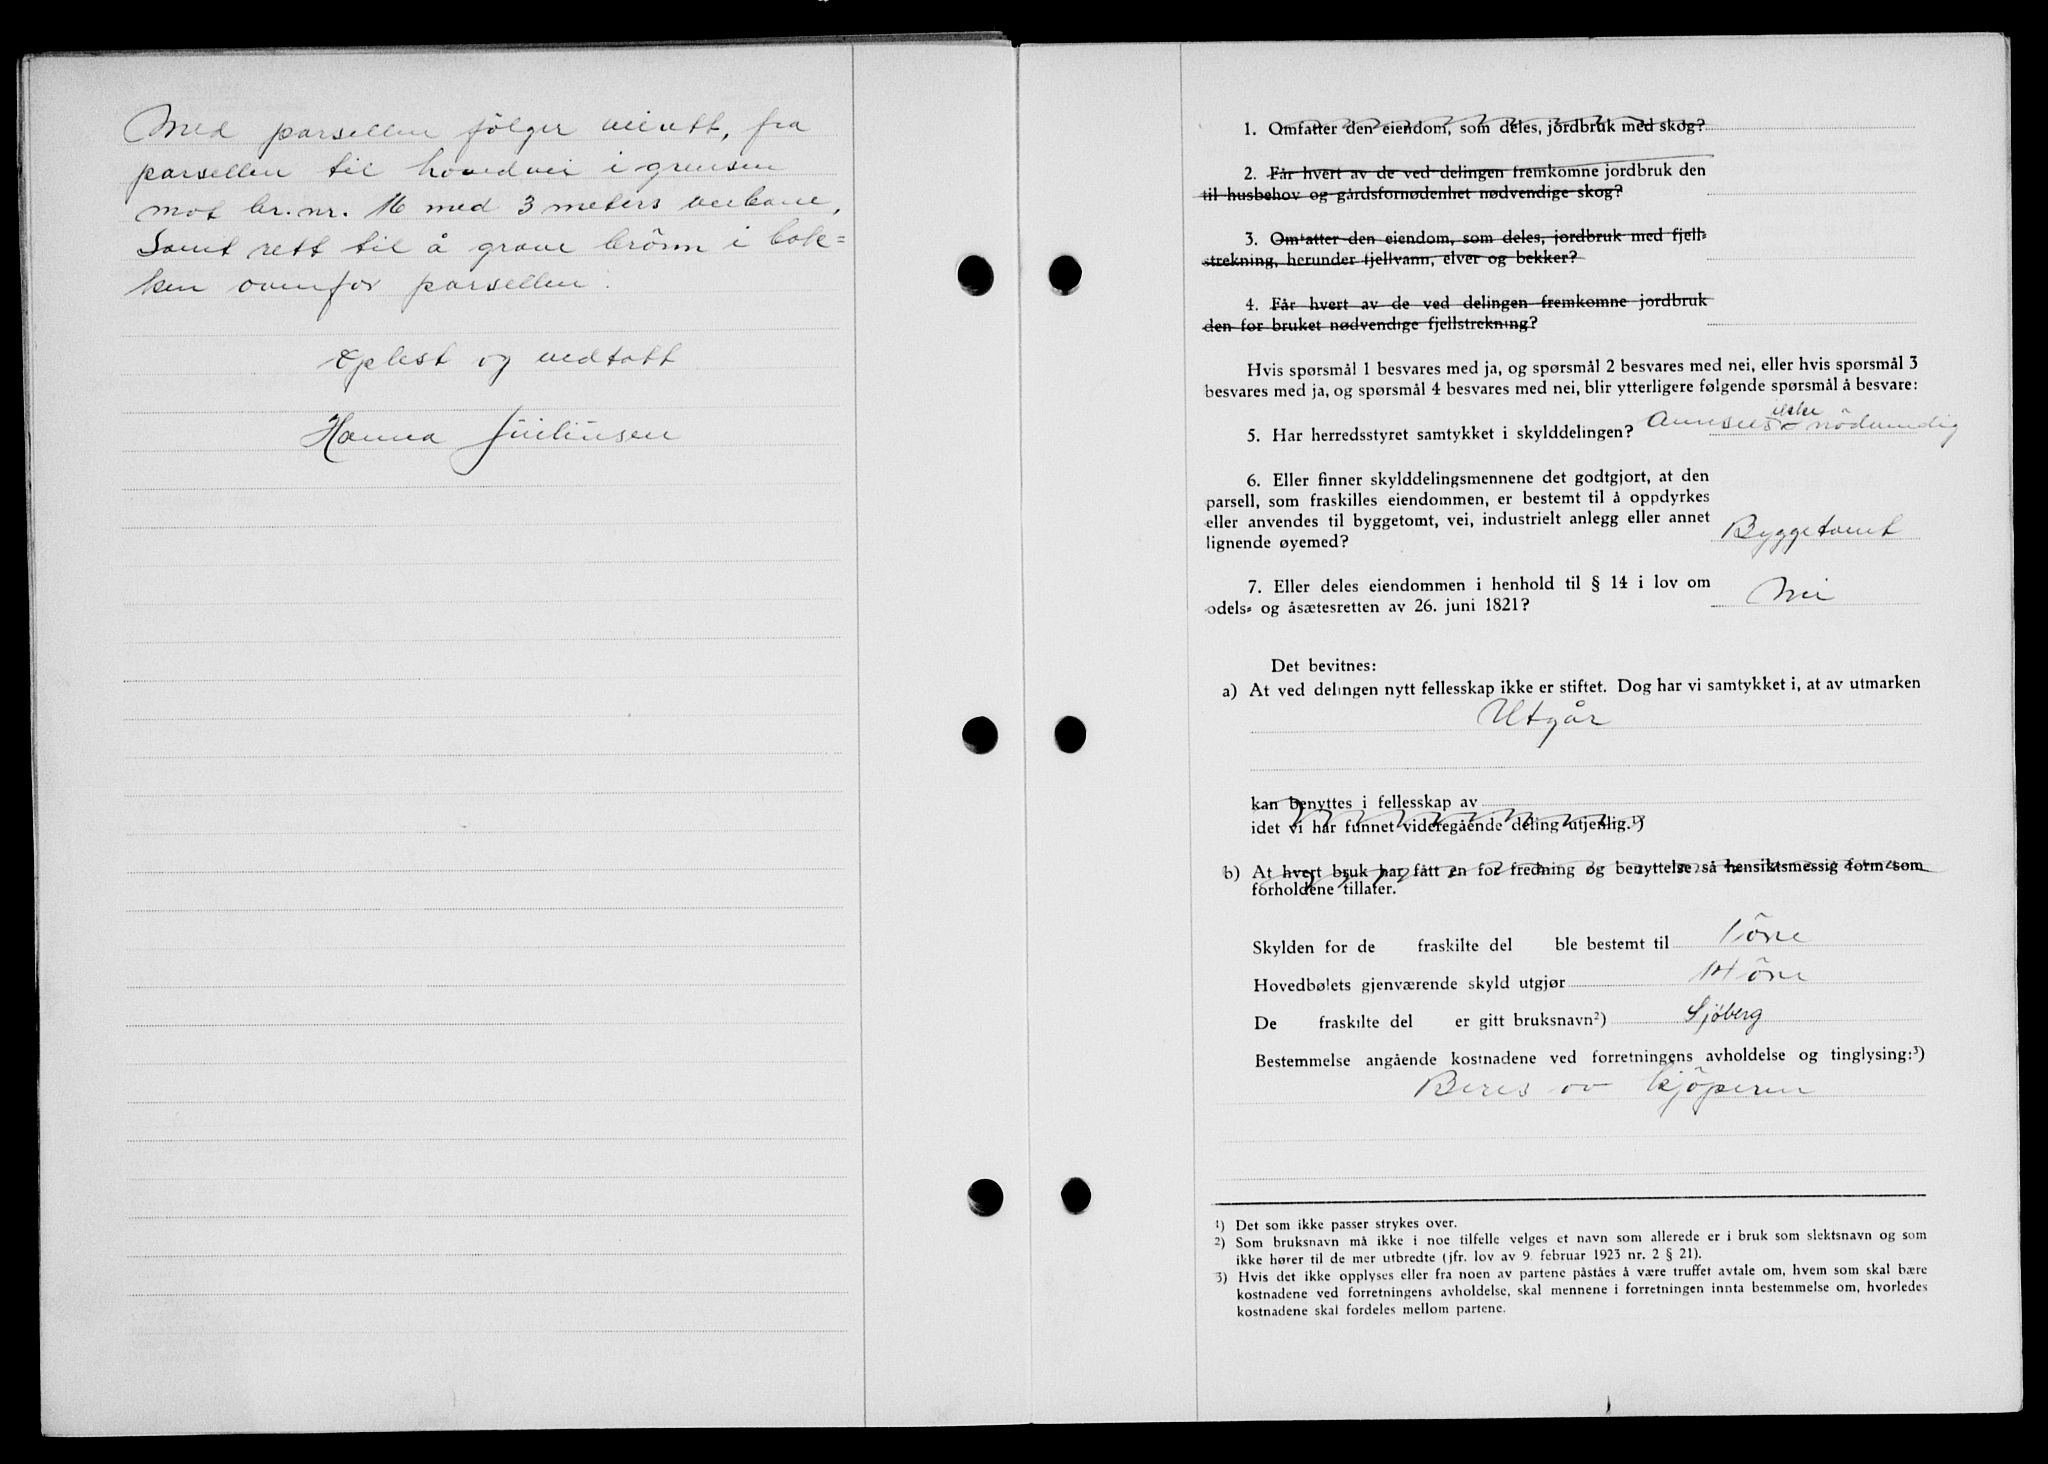 Med parsellen følger veirett, fra
parsellen til hovedvei i grensen
mot br. nr. 16 med 3 meters veibane,
Samt rett til å grave brönn i bak=
ken ovenfor parsellen.
Oplest og vedtatt
Hanna
1. Omfatter den eiendom, som deles, jordbruk med skog?
2. Får hvert av de ved delingen fremkomne jordbruk den
til husbehov og gårdsfornødenhet nødvendige skog?
3. Omfatter den eiendom, som deles, jordbruk med fjell-
strekning, herunder fjellvann, elver og bekker?
4. Får hvert av de ved delingen fremkomne jordbruk
den for bruket nødvendige fjellstrekning?
Hvis spørsmål 1 besvares med ja, og spørsmål 2 besvares med nei, eller hvis spørsmål 3
besvares med ja, og spørsmål 4 besvares med nei, blir ytterligere følgende spørsmål å besvare:
5. Har herredsstyret samtykket i skylddelingen? Ansees ikke nödvendig
6. Eller finner skylddelingsmennene det godtgjort, at den
parsell, som fraskilles eiendommen, er bestemt til å oppdyrkes
eller anvendes til byggetomt, vei, industrielt anlegg eller annet
lignende øyemed? Byggetomt
7. Eller deles eiendommen i henhold til § 14 i lov om
odels- og åsætesretten av 26. juni 1821? Nei
Det bevitnes:
a) At ved delingen nytt fellesskap ikke er stiftet. Dog har vi samtykket i, at av utmarken
Utgår
kan benyttes i fellesskap av
idet vi har funnet videregående deling utjenlig.¹)
b) At hvert bruk har fått en for fredning og benyttelse så hensiktsmessig form som
forholdene tillater.
Skylden for de fraskilte del ble bestemt til 1 öre
Hovedbølets gjenværende skyld utgjør 14 öre
De fraskilte del er gitt bruksnavn²) Sjöberg
Bestemmelse angående kostnadene ved forretningens avholdelse og tinglysing:³)
Beres av kjöperen
¹) Det som ikke passer strykes over.
²) Som bruksnavn må ikke i noe tilfelle velges et navn som allerede er i bruk som slektsnavn og som
ikke hører til de mer utbredte (jfr. lov av 9. februar 1923 nr. 2 § 21).
³) Hvis det ikke opplyses eller fra noen av partene påståes å være truffet avtale om, hvem som skal bære
kostnadene ved forretningens avholdelse, skal mennene i forretningen innta bestemmelse om, hvorledes
kostnadene skal fordeles mellom partene.